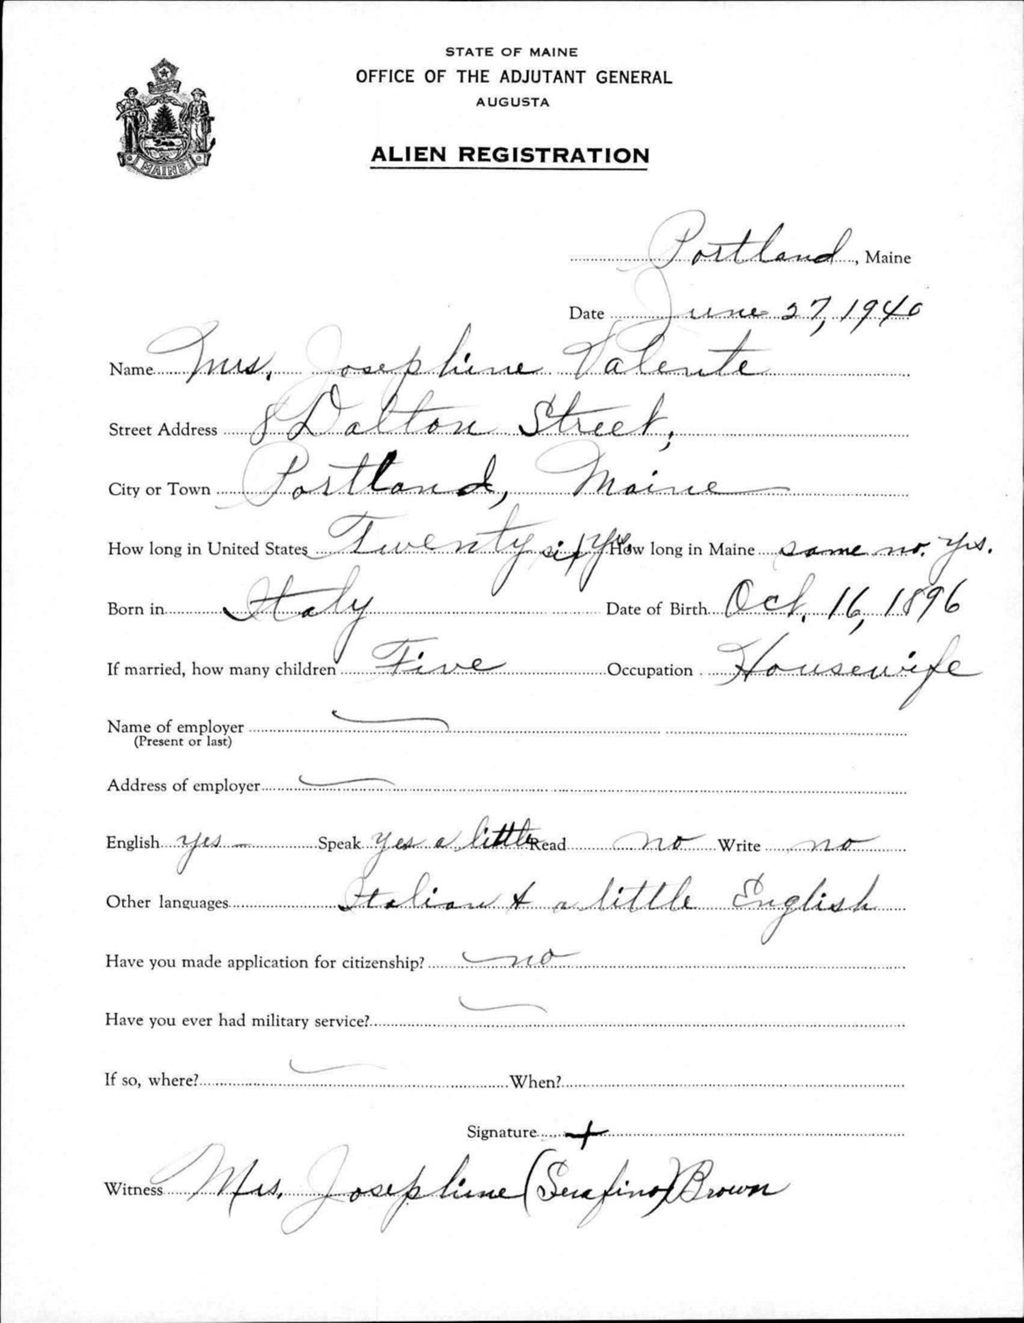 STATE OF MAINE
OFFICE OF THE ADJUTANT GENERAL
AUGUSTA
ALIEN REGISTRATION
MAINE
Portland, Maine
Date June 27, 1940
Name Mrs. Josephine Valente
Street Address 8 Dalton Street,
City or Town Portland, Maine
How long in United States Twenty six yrs How long in Maine same no. yrs.
Born in Italy Date of Birth Oct. 16, 1896
If married, how many children Five Occupation Housewife
Name of employer
(Present or last)
Address of employer
English yes – Speak yes a little Read no Write no
Other languages Italian & a little English
Have you made application for citizenship? no
Have you ever had military service?
If so, where? When?
Signature +
Witness Mrs. Josephine (Serafino) Brown